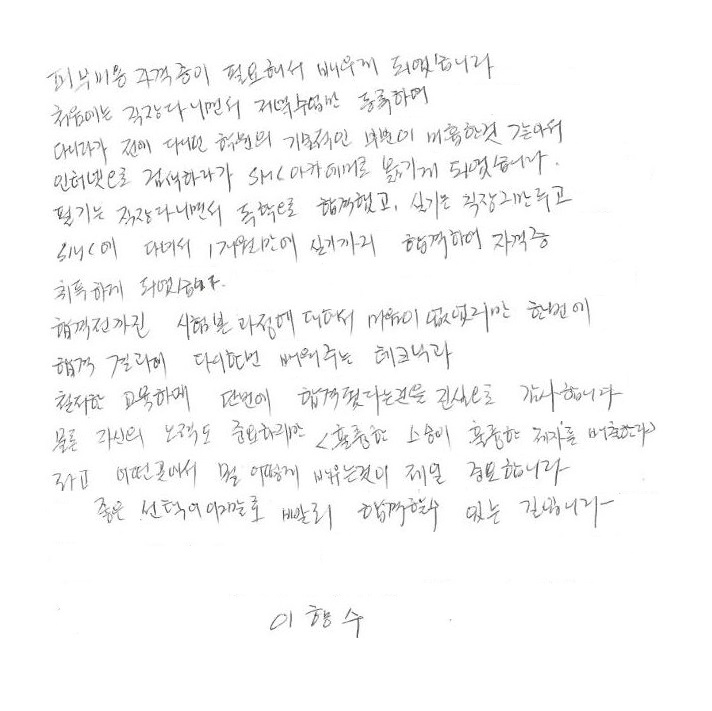 피부미용 자격증이 필요해서 배우게 되었습니다
처음에는 직장다니면서 저녁수업반 등록하여
다니다가 전에 다니던 학원의 기술적인 부분이 미흡한것 같아서
인터넷으로 검색하다가 SMC아카데미로 옮기게 되었습니다.
필기는 직장다니면서 독학으로 합격했고, 실기는 직장그만두고
SMC에 다녀서 1개월만에 실기까지 합격하여 자격증
취득하게 되었습니다.
합격전까진 시험본 과정에 대해서 믿음이 없었지만 한번에
합격 결과에 다시한번 배워주는 테크닉과
철저한 교육하에 단번에 합격됐다는것을 진심으로 감사합니다
물론 자신의 노력도 중요하지만 <훌륭한 스승이 훌륭한 제자를 배출한다>
라고 어떤곳에서 뭘 어떻게 배우는것이 제일 중요합니다
좋은 선택이 빨리 합격할수 있는 길입니다
이향수